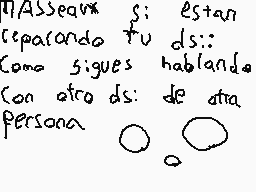 MASseaux si estan
reparando tu ds::
Como sigues hablando
Con otro ds: de otra
Persona